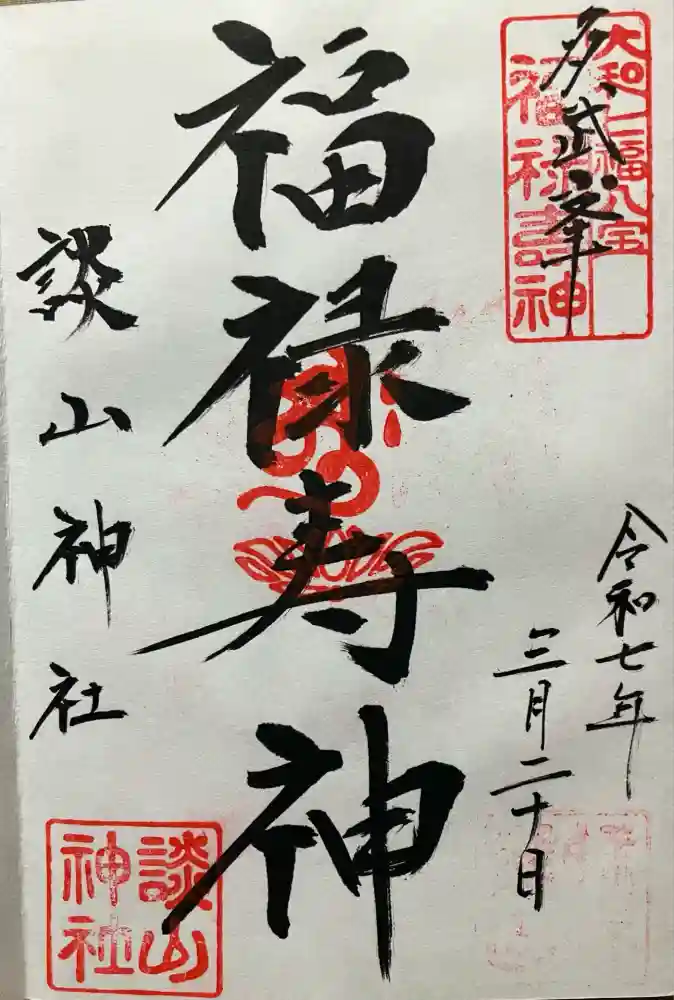 多武峯
大和七福八宝
福禄寿神
令和七年
三月二十日
福禄寿神
談山神社
談山神社